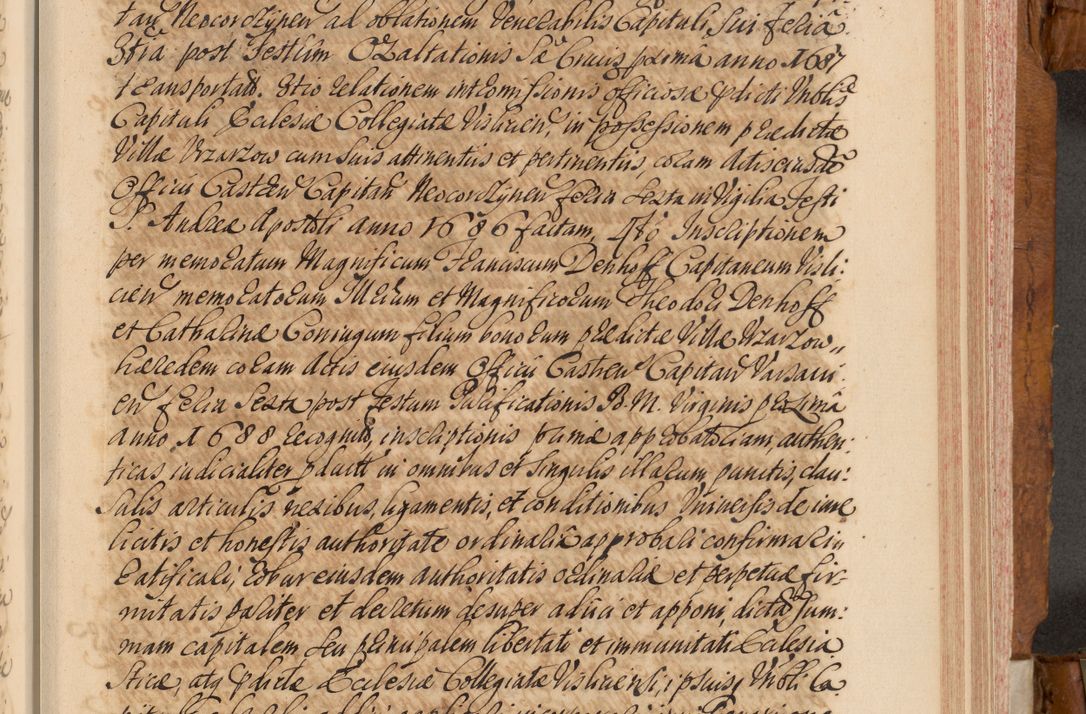 tan Neocorczynen ad oblationem Venerabilis Capituli sui feria
3tia post Festum Exaltationis Sæ Crucis proxima anno 1687
transportata. 3tio relationem intromissionis officiosæ pdicti Vnblis
Capituli Ecclesiæ Collegiatæ Vislicien, in possessionem prædictæ
Villæ Vrzarzow cum suis attinentiis et pertinentiis, coram Actis eiusdem
Officii Castren Capitan Neocorczynen feria sexta in Vigilia Festi
S. Andreæ Apostoli anno 1686 factam, 4to Inscriptionem
per memoratum Magnificum Franciscum Denhoff Capitaneum Visli:
cien memoratorum Illrium et Magnificorum Theodori Denhoff
et Catharinæ Coniugum filium bonorum prædictæ Villæ Vrzarzow„
hæredem coram Actis eiusdem Officii Castren Capitan Varsavi:
en feria Sexta post Festum Purificationis B. M. Virginis proxima
anno 1688 recognita, inscriptionis primæ approbatoriam, authen:
ticas iudicialiter pductas in omnibus et singulis illarum punctis, clau:
sulis articulis nexibus, ligamentis, et conditionibus Vniversis de iure
licitis et honestis authoritate ordinaria approbari confirmari„
ratificari, robur eiusdem authoritatis ordinariæ et perpetuæ fir-
mitatis pariter et decretum desuper adiici et apponi, dictā Sum:
mam capitalem seu principalem libertati et immunitati Ecclesia
sticæ, atq pdictæ Ecclesiæ Collegiatæ Visliciensi, ipsiusq Vnbli Ca